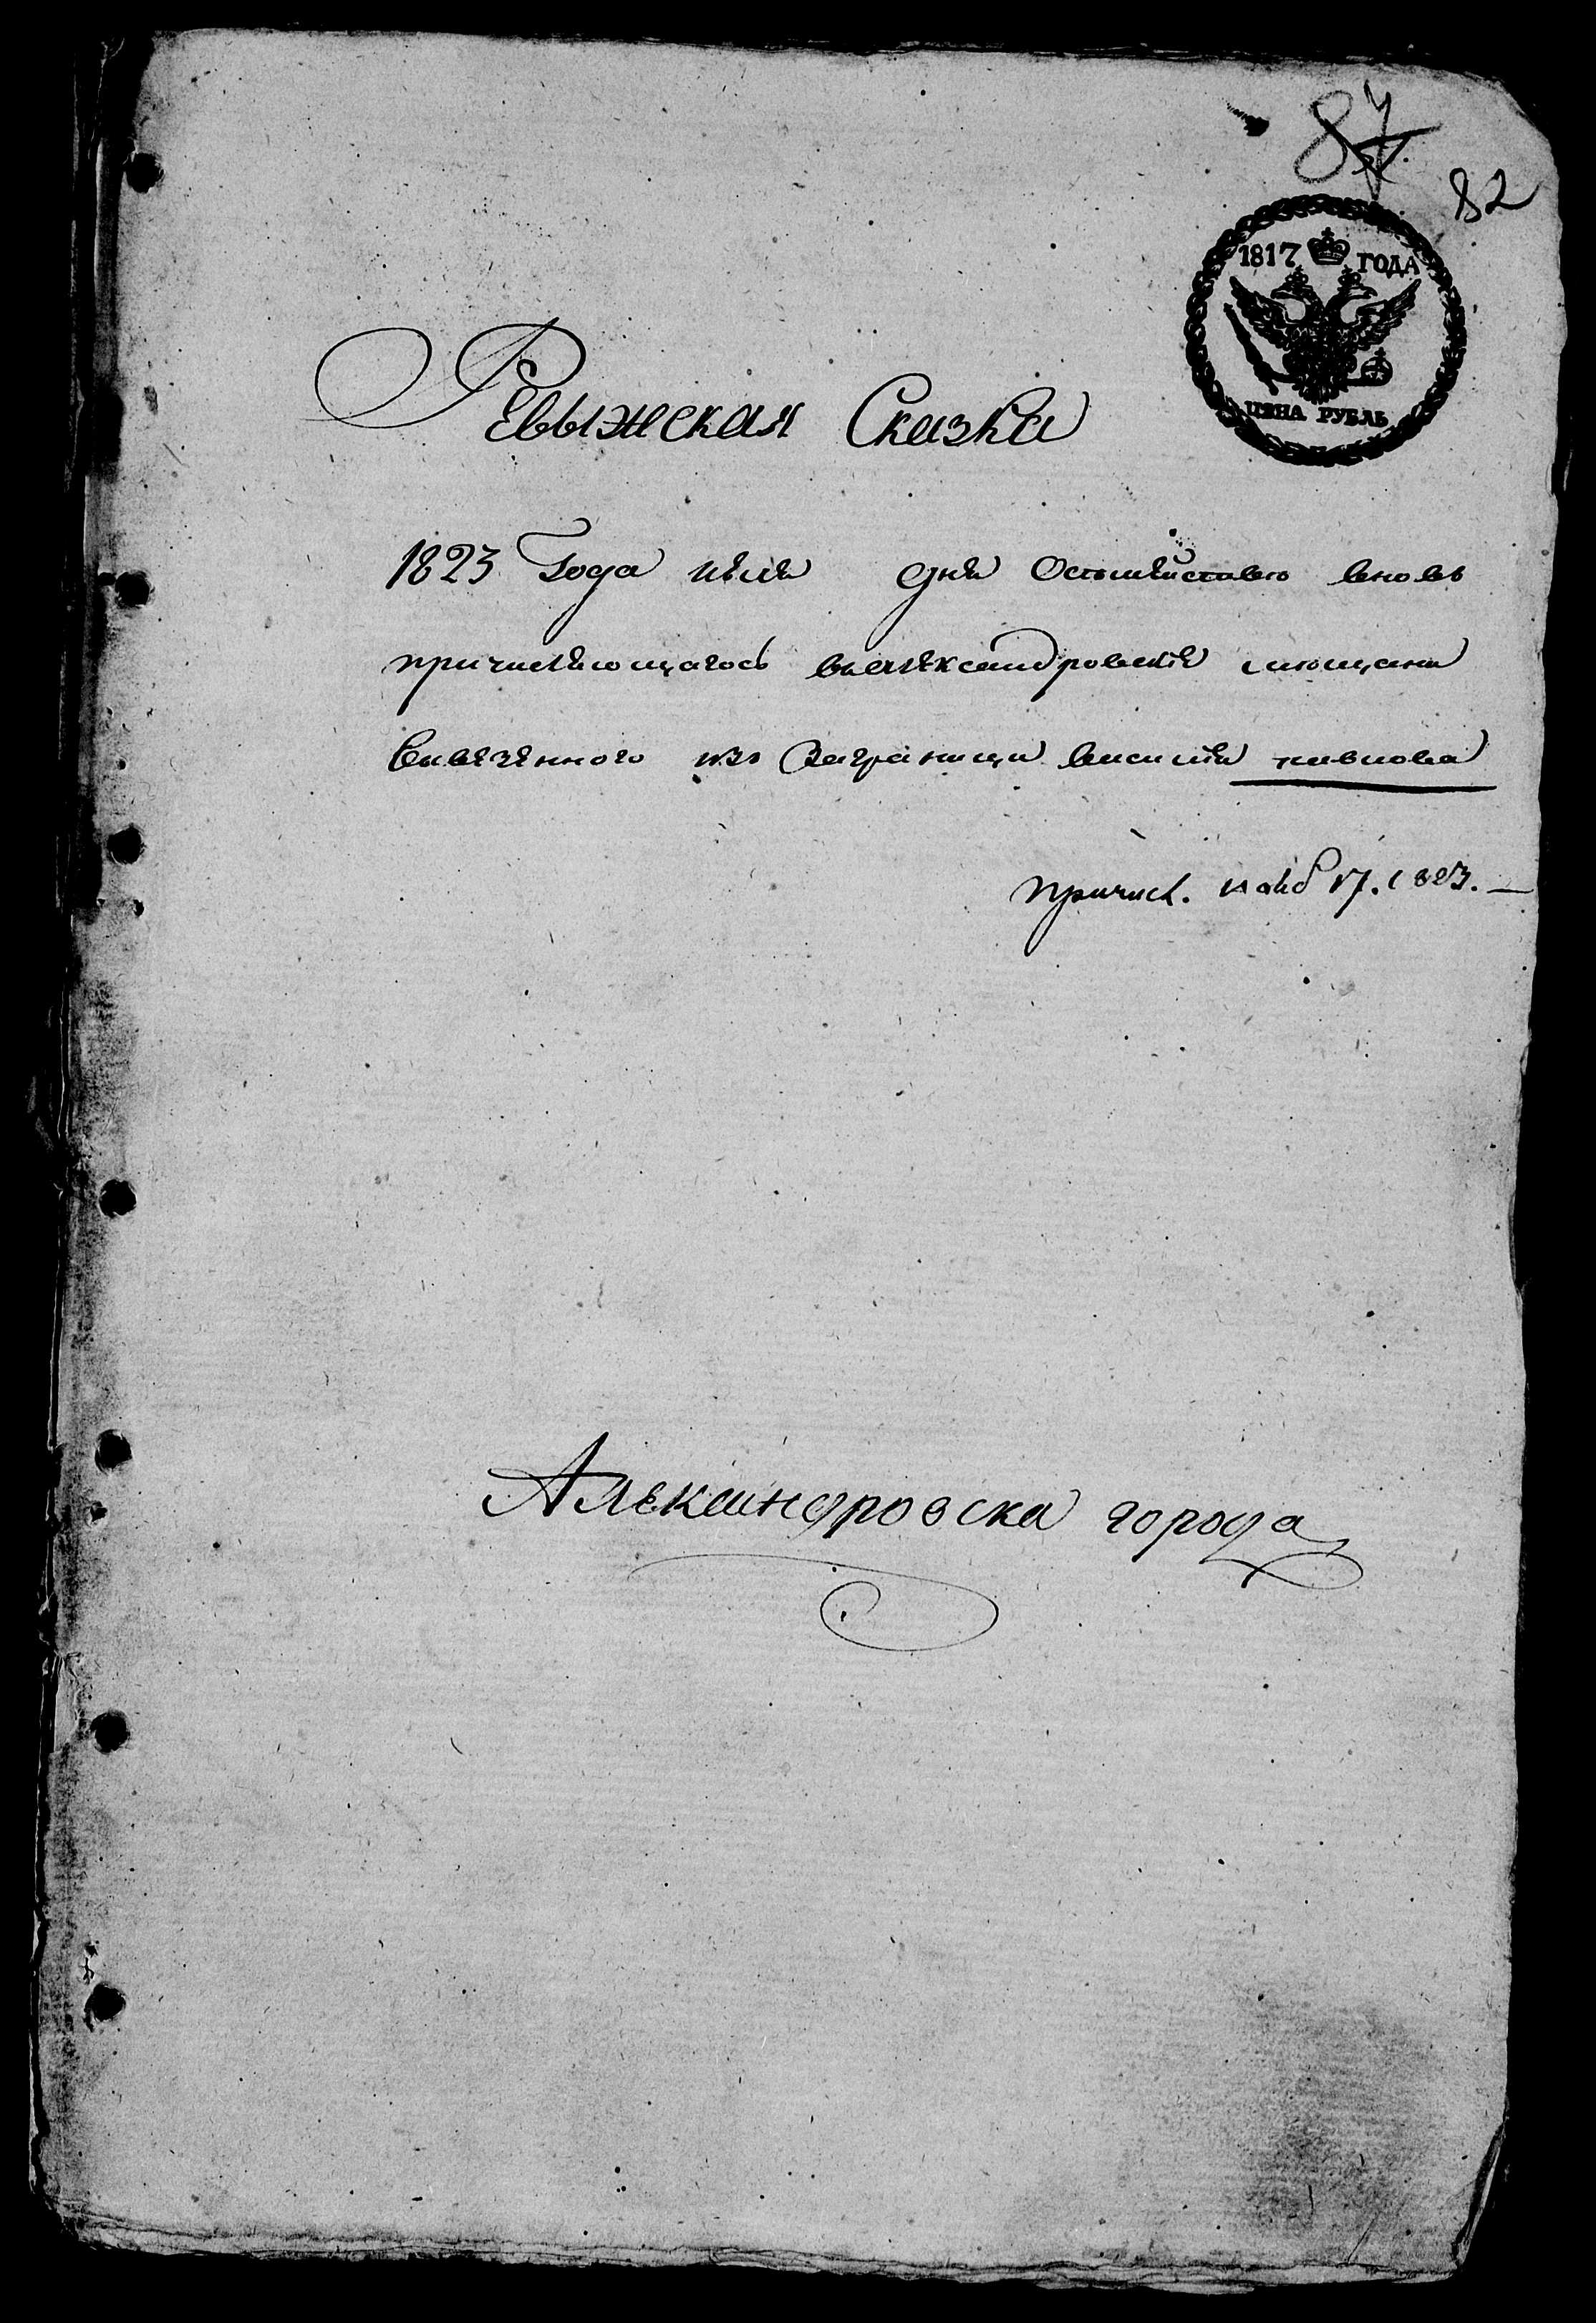 87
82
1817 ГОДА
ЦѢНА РУБЛЬ
Ревыжская Сказка
1823 Года июля дня Осемействѣ вновь
причисляющагось валександровские мещани
вивезенного изъ Заграници василия
причисл. нояб 17. 1823.
Александровска города